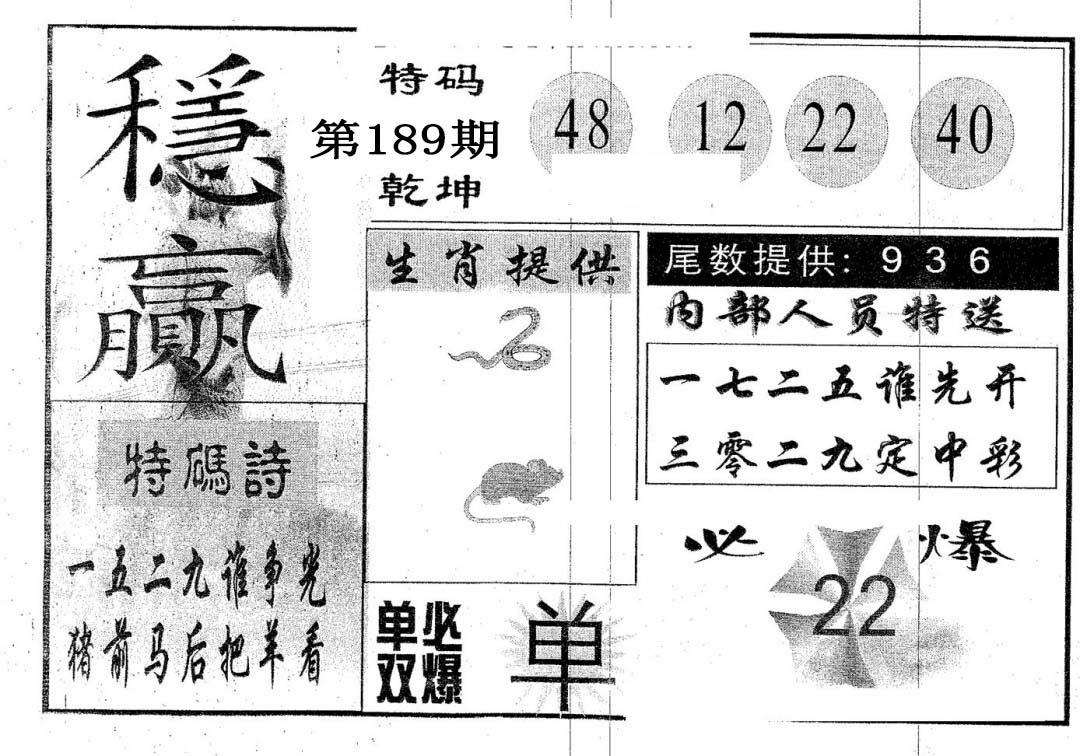 穩
贏
特码
第189期
乾坤
48 12 22 40
生肖提供
尾数提供: 9 3 6
内部人员特送
一七二五谁先开
三零二九定中彩
特碼詩
一五二九谁争光
猪前马后把羊看
单双必爆
单
必爆
22